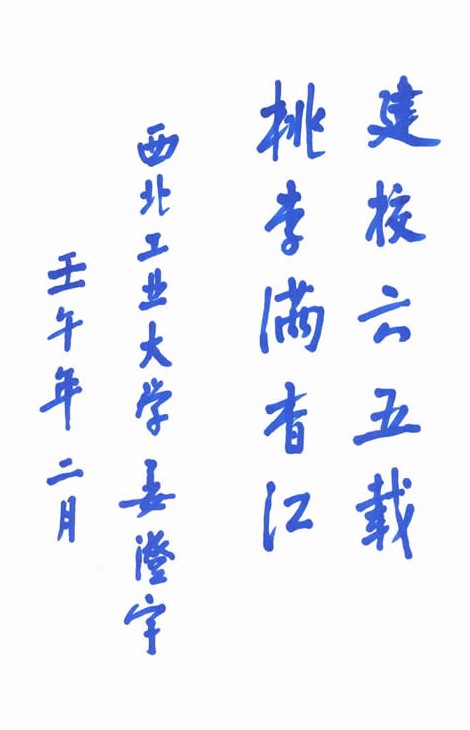 建校六五载
桃李满香江
西北工业大学 姜澄宇
壬午年二月